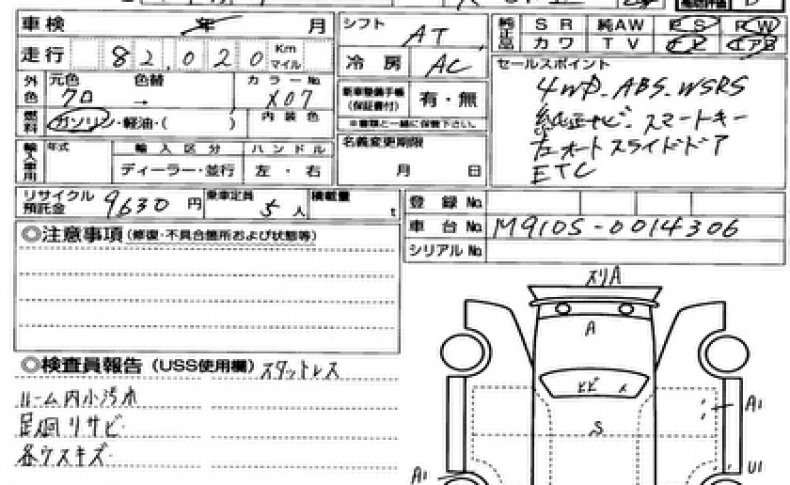 車検 年 月
走行 82,020 Km マイル
外色 元色 クロ → 色替 カラーNo X07
燃料 ガソリン・軽油・( ) 内装色
輸入車用 年式 輸入区分 ディーラー・並行 ハンドル 左・右
リサイクル預託金 9630 円 乗車定員 5 人 積載量 t
シフト AT
冷房 AC
新車整備手帳(保証書付) 有・無
※書類と一緒に保管下さい。
名義変更期限 月 日
純正品 SR 純AW PS PW
カワ TV ナビ エアB
セールスポイント
4WD. ABS. WSRS
純正ナビ. スマートキー
左オートスライドドア
ETC
登録No.
車台No. M910S-0014306
シリアルNo.
◎注意事項(修復・不具合箇所および状態等)
◎検査員報告(USS使用欄) スタットレス
ルーム内小汚れ
足廻りサビ
各ウスキズ
スリA
A
ヒビ
S
A1
A1
U1